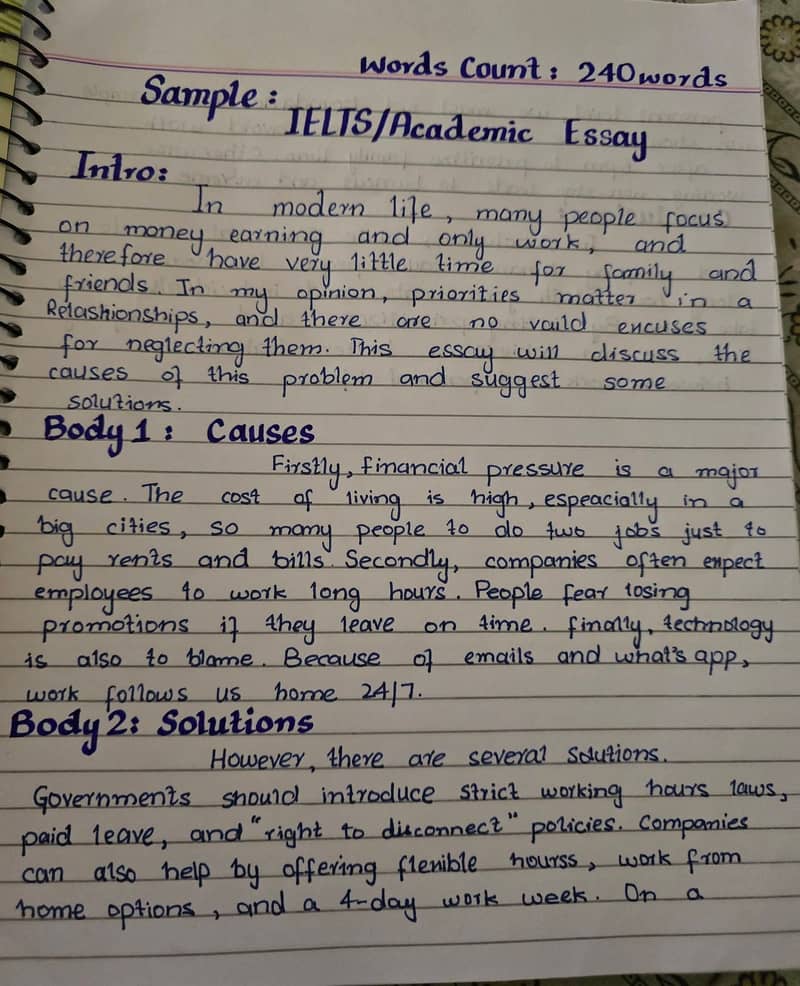 Words Count: 240 words
Sample:
IELTS/Academic Essay
Intro:
In modern life, many people focus
on money earning and only work, and
therefore have very little time for family and
friends. In my opinion, priorities matter in a
Relashionships, and there are no vaild excuses
for neglecting them. This essay will discuss the
causes of this problem and suggest some
solutions.
Body 1: Causes
Firstly, financial pressure is a major
cause. The cost of living is high, espeacially in a
big cities, so many people to do two jobs just to
pay rents and bills. Secondly, companies often expect
employees to work long hours. People fear losing
promotions if they leave on time. finally, technology
is also to blame. Because of emails and what's app,
work follows us home 24/7.
Body 2: Solutions
However, there are several solutions.
Governments should introduce strict working hours laws,
paid leave, and "right to disconnect" policies. Companies
can also help by offering flexible hourss, work from
home options, and a 4-day work week. On a